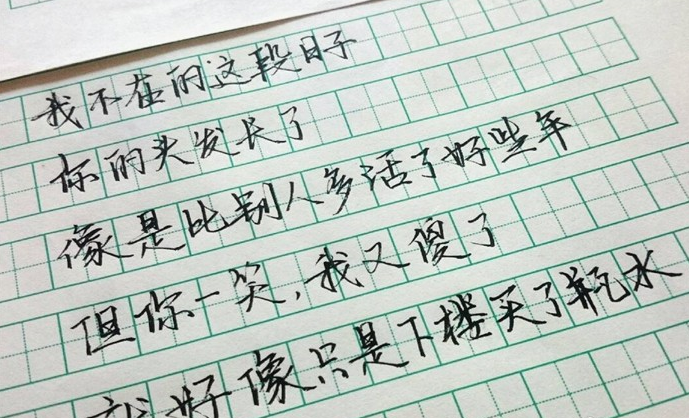 我不在的这段日子
你的头发长了
像是比别人多活了好些年
但你一笑,我又傻了
就好像只是下楼买了瓶水